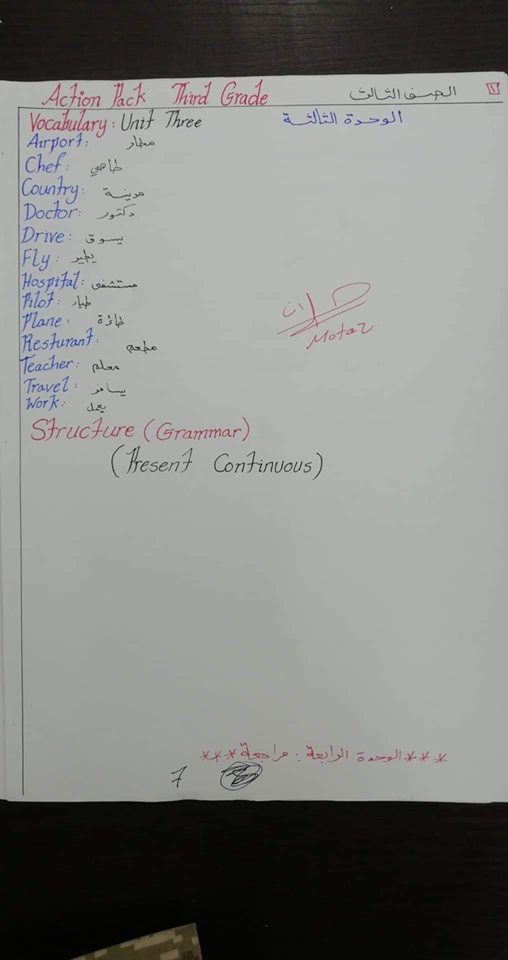 Action Pack Third Grade الصف الثالث
Vocabulary: Unit Three الوحدة الثالثة
Airport: مطار
Chef: طاهي
Country: مدينة
Doctor: دكتور
Drive: يسوق
Fly: يطير
Hospital: مستشفى
Pilot: طيار
Plane: طائرة
Resturant: مطعم
Teacher: معلم
Travel: يسافر
Work: يعمل
Motaz
Structure (Grammar)
(Present Continuous)
***الوحدة الرابعة: مراجعة***
7